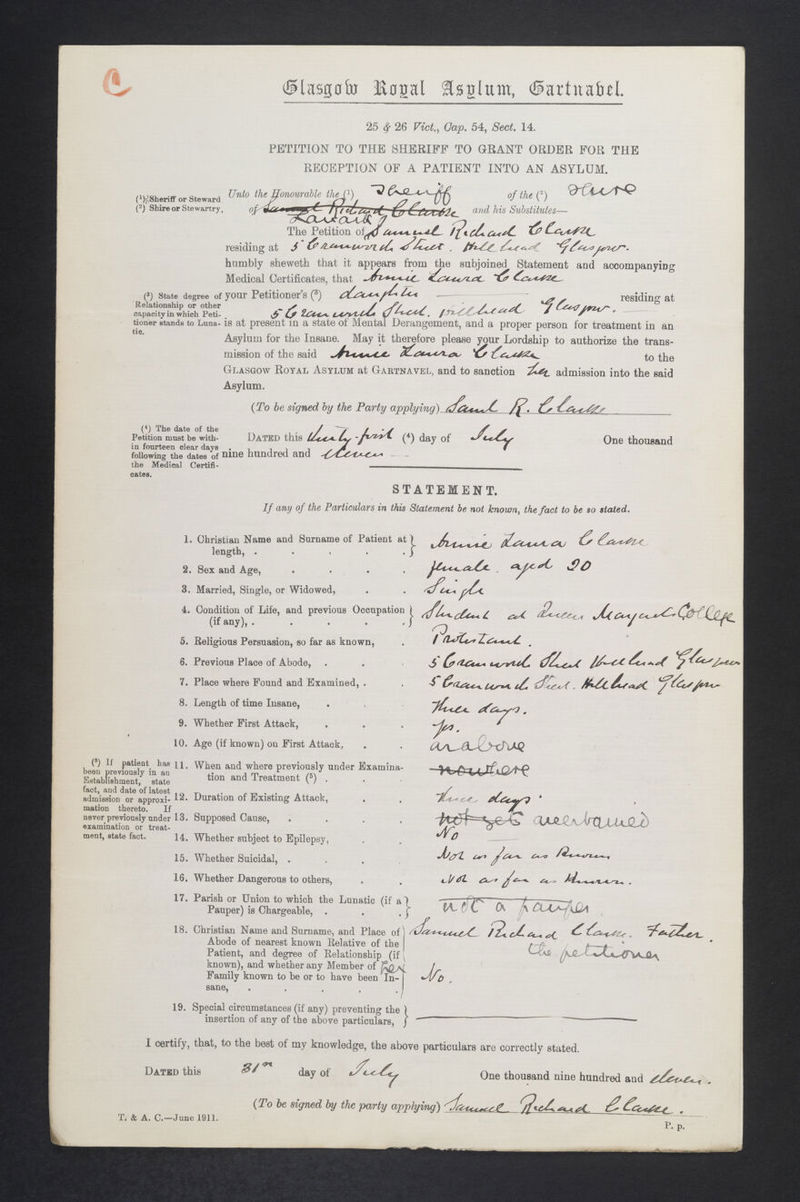 C
Glasgow Royal Asylum, Gartnabel.
25 & 26 Vict., Cap. 54, Sect. 14.
PETITION TO THE SHERIFF TO GRANT ORDER FOR THE
RECEPTION OF A PATIENT INTO AN ASYLUM.
(¹) Sheriff or Steward
(²) Shire or Stewartry,
Unto the Honourable the (¹) Sheriff of the (²) Shire
of Samuel Richard Clarke Lanark and his Substitutes—
The Petition of Samuel Richard Clarke
residing at 5 Cranworth Street. Hillhead Glasgow.
humbly sheweth that it appears from the subjoined Statement and accompanying
Medical Certificates, that Annie Laura Clarke
(³) State degree of
Relationship or other
capacity in which Peti-
tioner stands to Luna-
tic.
your Petitioner's (³) daughter residing at
5 Cranworth Street. Hillhead Glasgow.
is at present in a state of Mental Derangement, and a proper person for treatment in an
Asylum for the Insane. May it therefore please your Lordship to authorize the trans-
mission of the said Annie Laura Clarke to the
GLASGOW ROYAL ASYLUM at GARTNAVEL, and to sanction her admission into the said
Asylum.
(To be signed by the Party applying) Saml R. Clarke
(⁴) The date of the
Petition must be with-
in fourteen clear days
following the dates of
the Medical Certifi-
cates.
DATED this thirty-first (⁴) day of July One thousand
nine hundred and eleven
STATEMENT.
If any of the Particulars in this Statement be not known, the fact to be so stated.
1. Christian Name and Surname of Patient at
length, . . . . . Annie Laura Clarke
2. Sex and Age, . . . . female. aged 20
3. Married, Single, or Widowed, . . Single
4. Condition of Life, and previous Occupation
(if any), . . . . . Student at Queen Margaret College
5. Religious Persuasion, so far as known, . Protestant.
6. Previous Place of Abode, . . . 5 Cranworth Street Hillhead Glasgow
7. Place where Found and Examined, . . 5 Cranworth Street. Hillhead Glasgow
8. Length of time Insane, . . . Three days.
9. Whether First Attack, . . . Yes.
10. Age (if known) on First Attack, . . as above
(⁵) If patient has
been previously in an
Establishment, state
fact, and date of latest
admission or approxi-
mation thereto. If
never previously under
examination or treat-
ment, state fact.
11. When and where previously under Examina-
tion and Treatment (⁵) . . . nowhere
12. Duration of Existing Attack, . . Three days.
13. Supposed Cause, . . . . not yet ascertained
14. Whether subject to Epilepsy, . . No
15. Whether Suicidal, . . . . Not as far as Known
16. Whether Dangerous to others, . . Not as far as Known.
17. Parish or Union to which the Lunatic (if a
Pauper) is Chargeable, . . . not a pauper
18. Christian Name and Surname, and Place of
Abode of nearest known Relative of the
Patient, and degree of Relationship (if
known), and whether any Member of her
Family known to be or to have been In-
sane, . . . . .
Samuel Richard Clarke. Father.
the petitioner
No.
19. Special circumstances (if any) preventing the
insertion of any of the above particulars,
I certify, that, to the best of my knowledge, the above particulars are correctly stated.
DATED this 31st day of July One thousand nine hundred and eleven.
(To be signed by the party applying) Samuel Richard Clarke.
T. & A. C.—June 1911.
P. p.